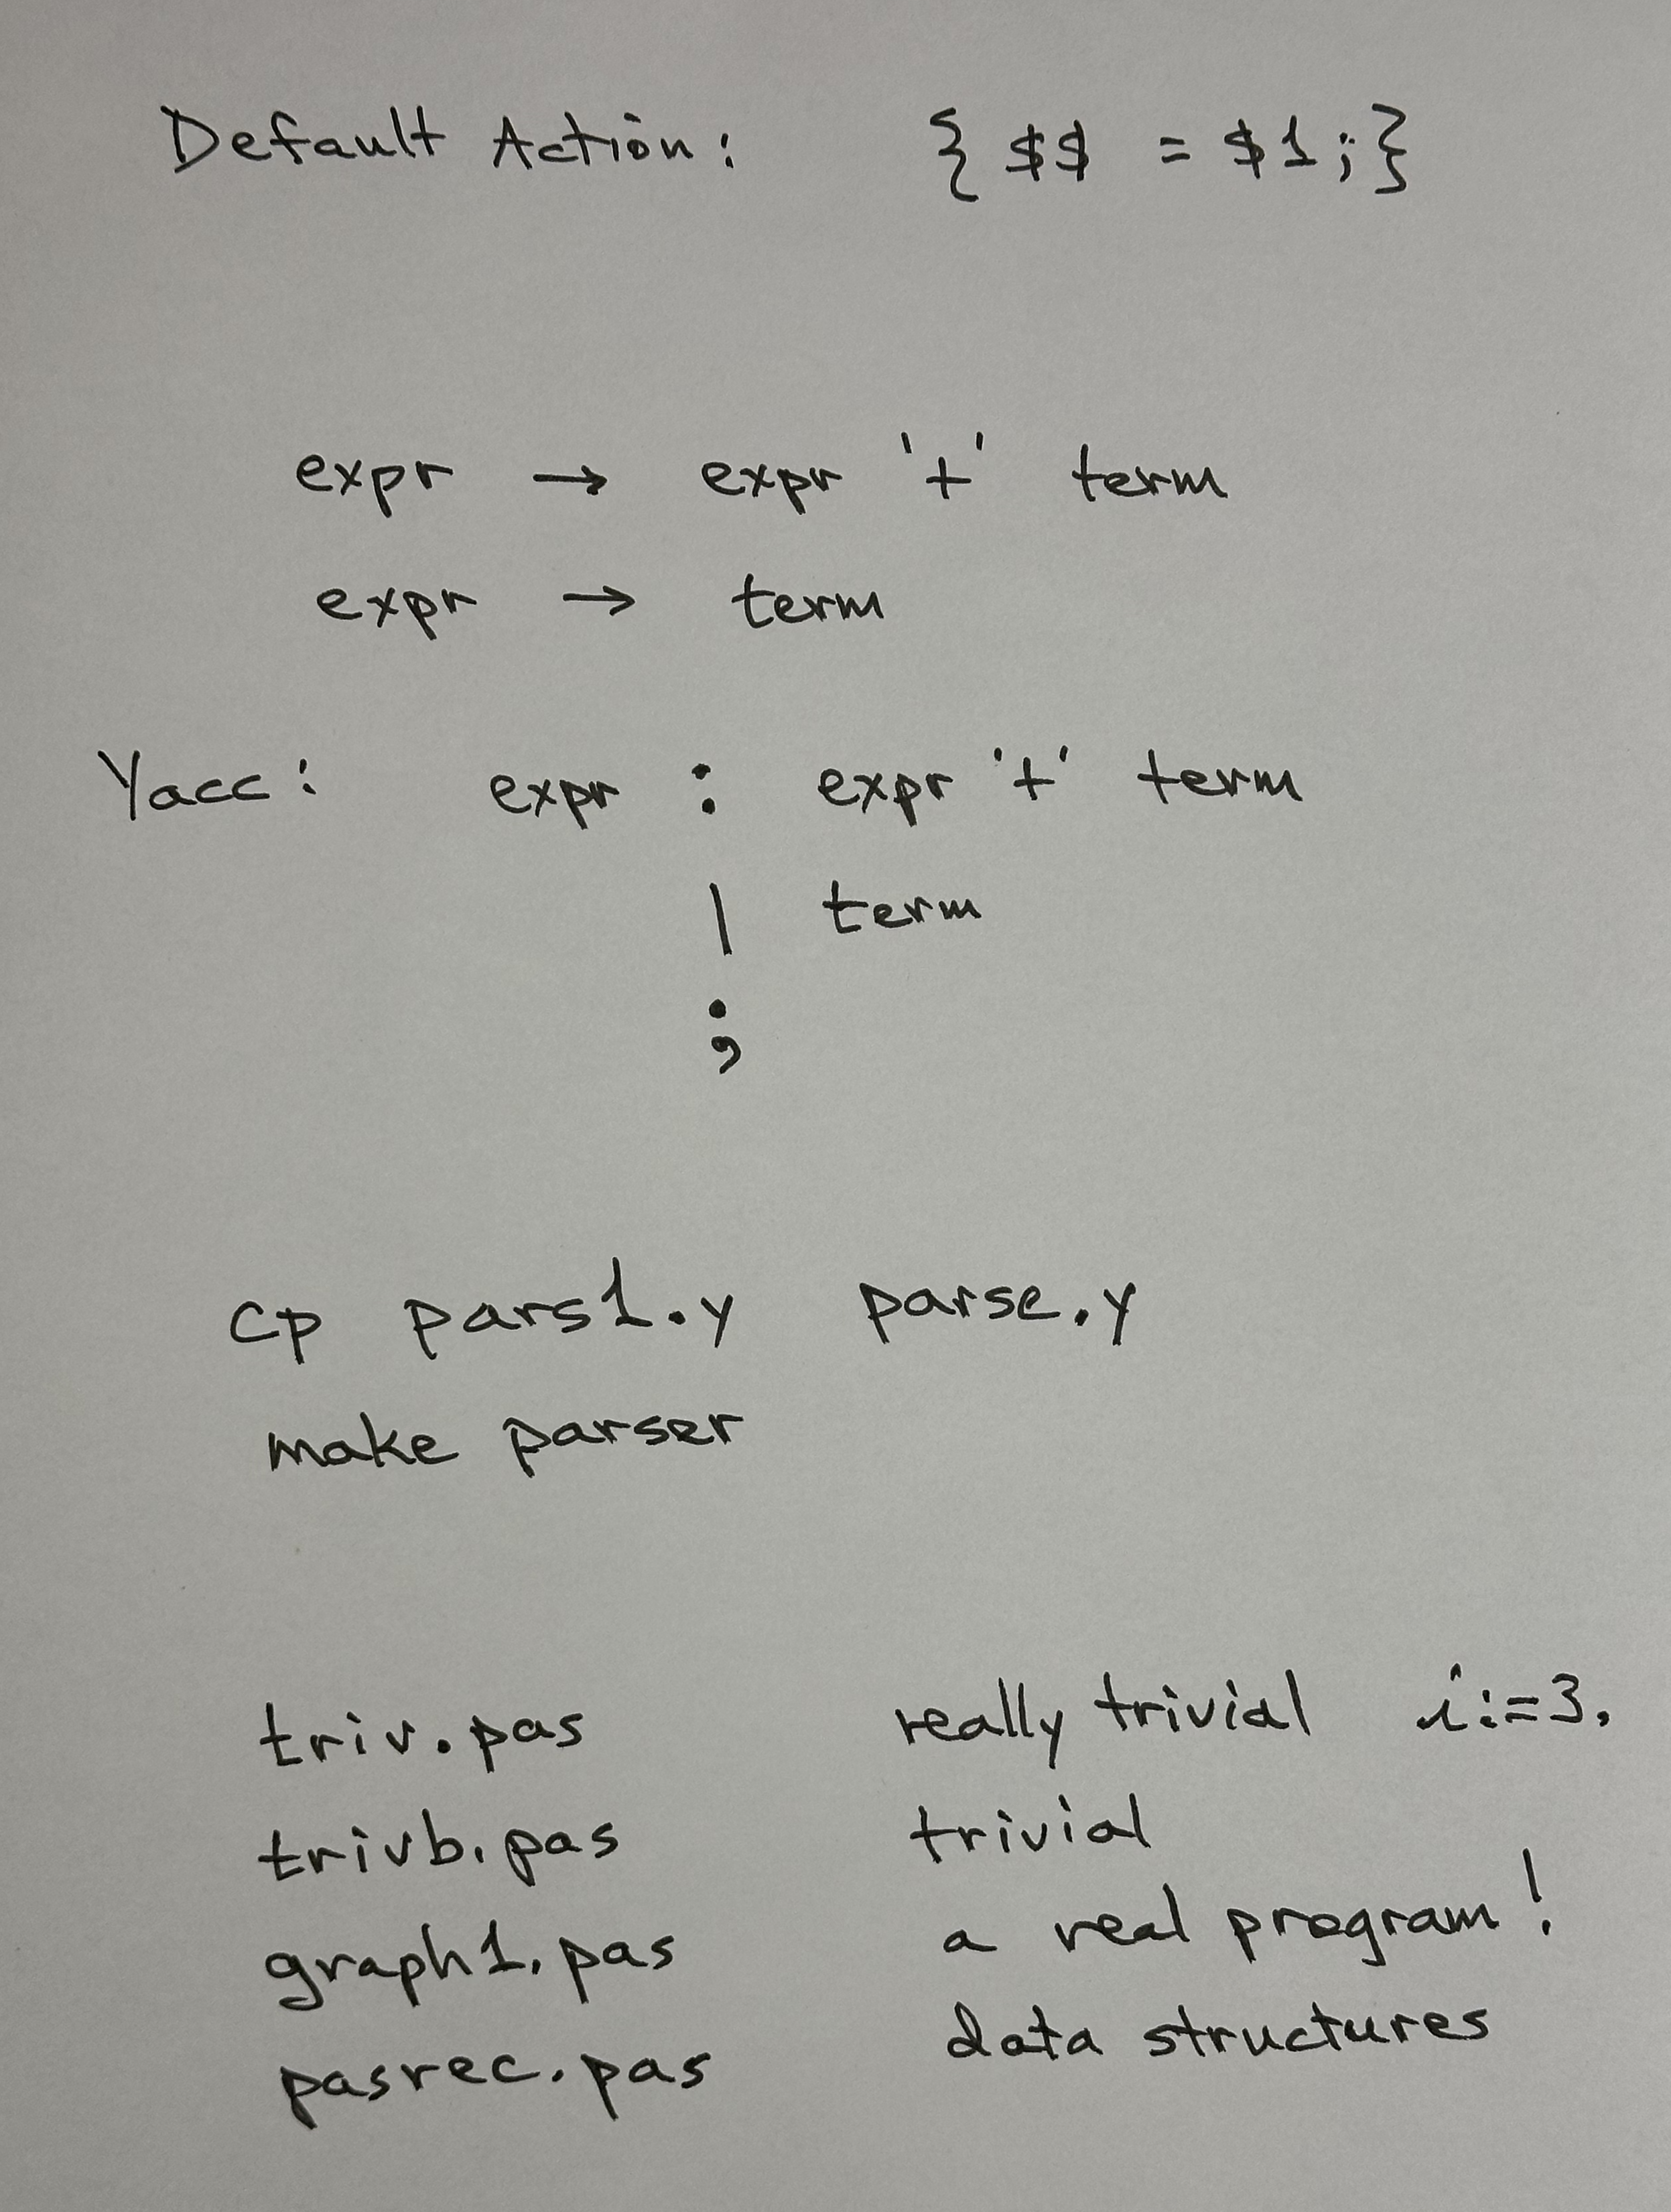 Default Action: { $$ = $1;}
expr → expr '+' term
expr → term
Yacc: expr : expr '+' term
| term
;
cp pars1.y parse.y
make parser
triv.pas really trivial i:=3,
trivb.pas trivial
graph1.pas a real program!
pasrec.pas data structures